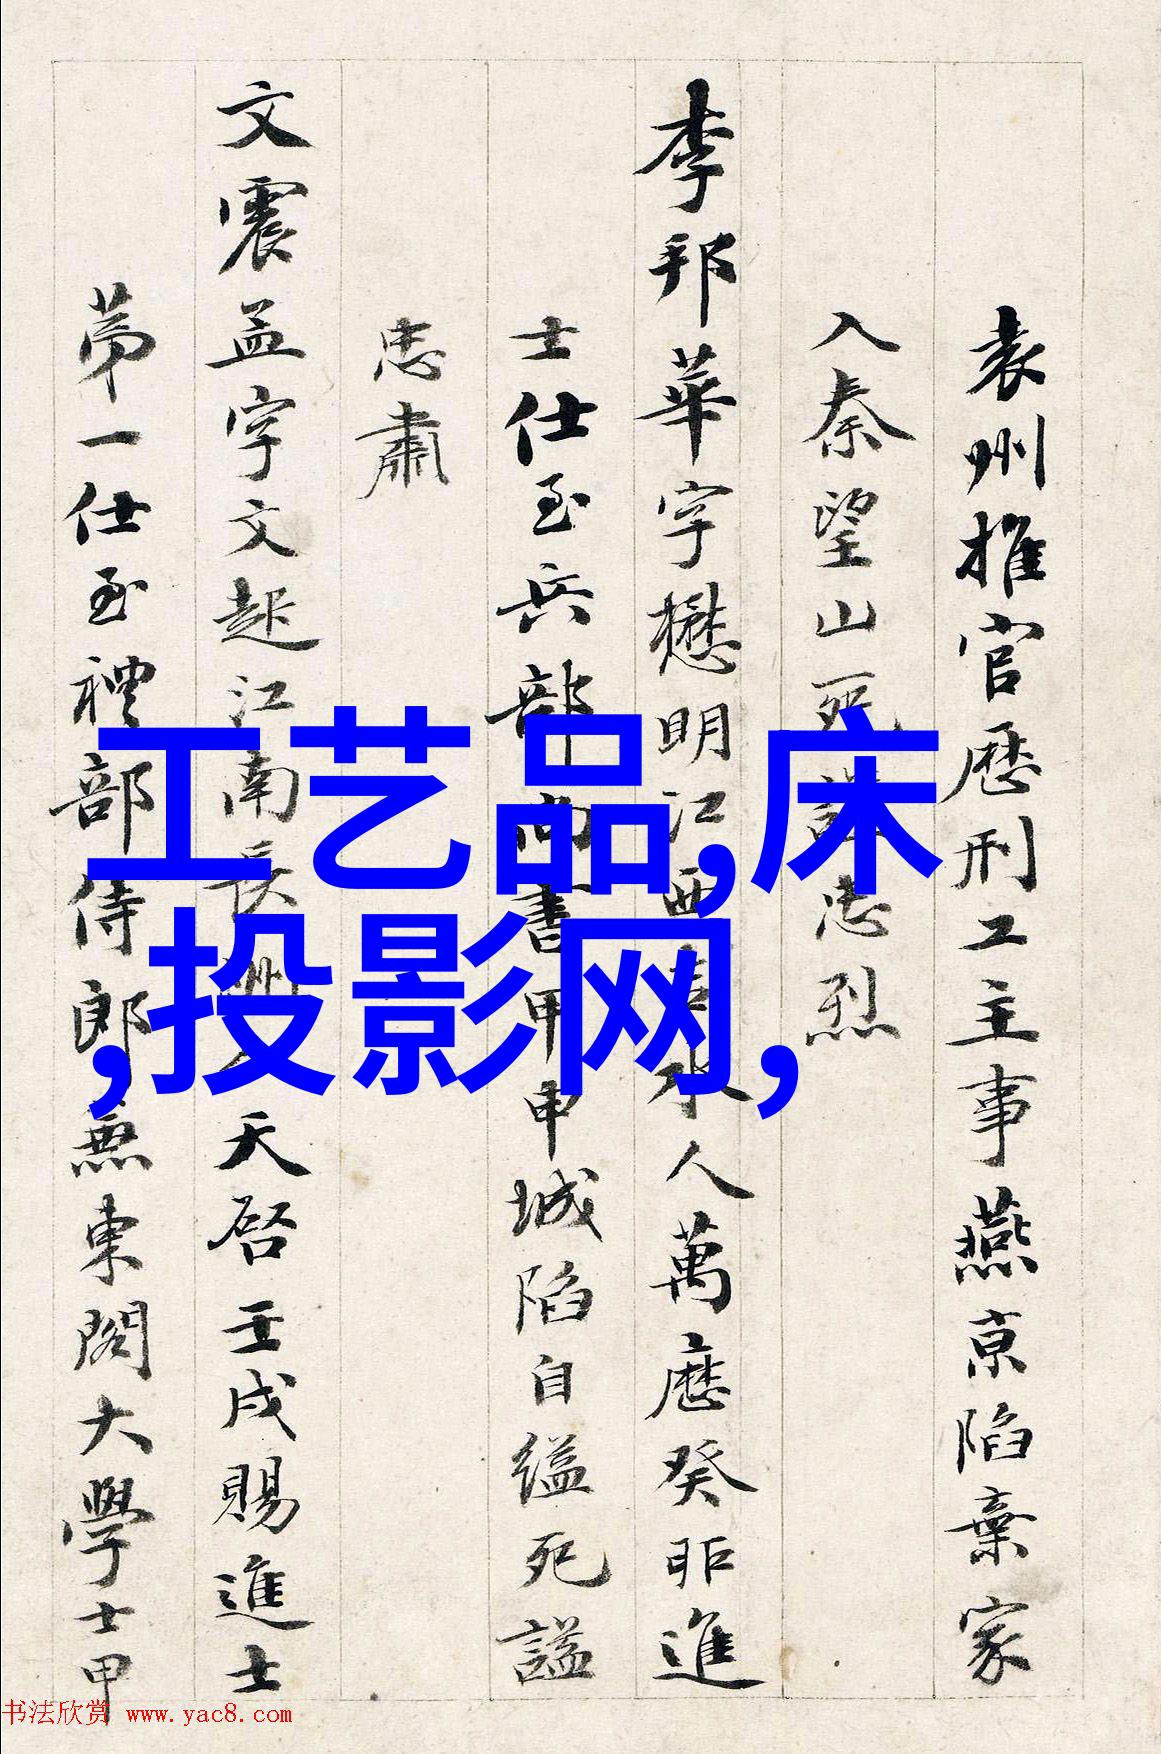 袁州推官歷刑工主事燕京陷棄家
入秦望山死諡忠烈
李邦華字懋明江西吉水人萬歷癸卯進
士仕至兵部尚書甲申城陷自縊死諡
忠肅
文震孟字文起江南長洲人天啓壬戌賜進士
第一仕至禮部侍郎兼東閣大學士甲
工艺品,床
,投影网,
书法欣赏 www.yac8.com